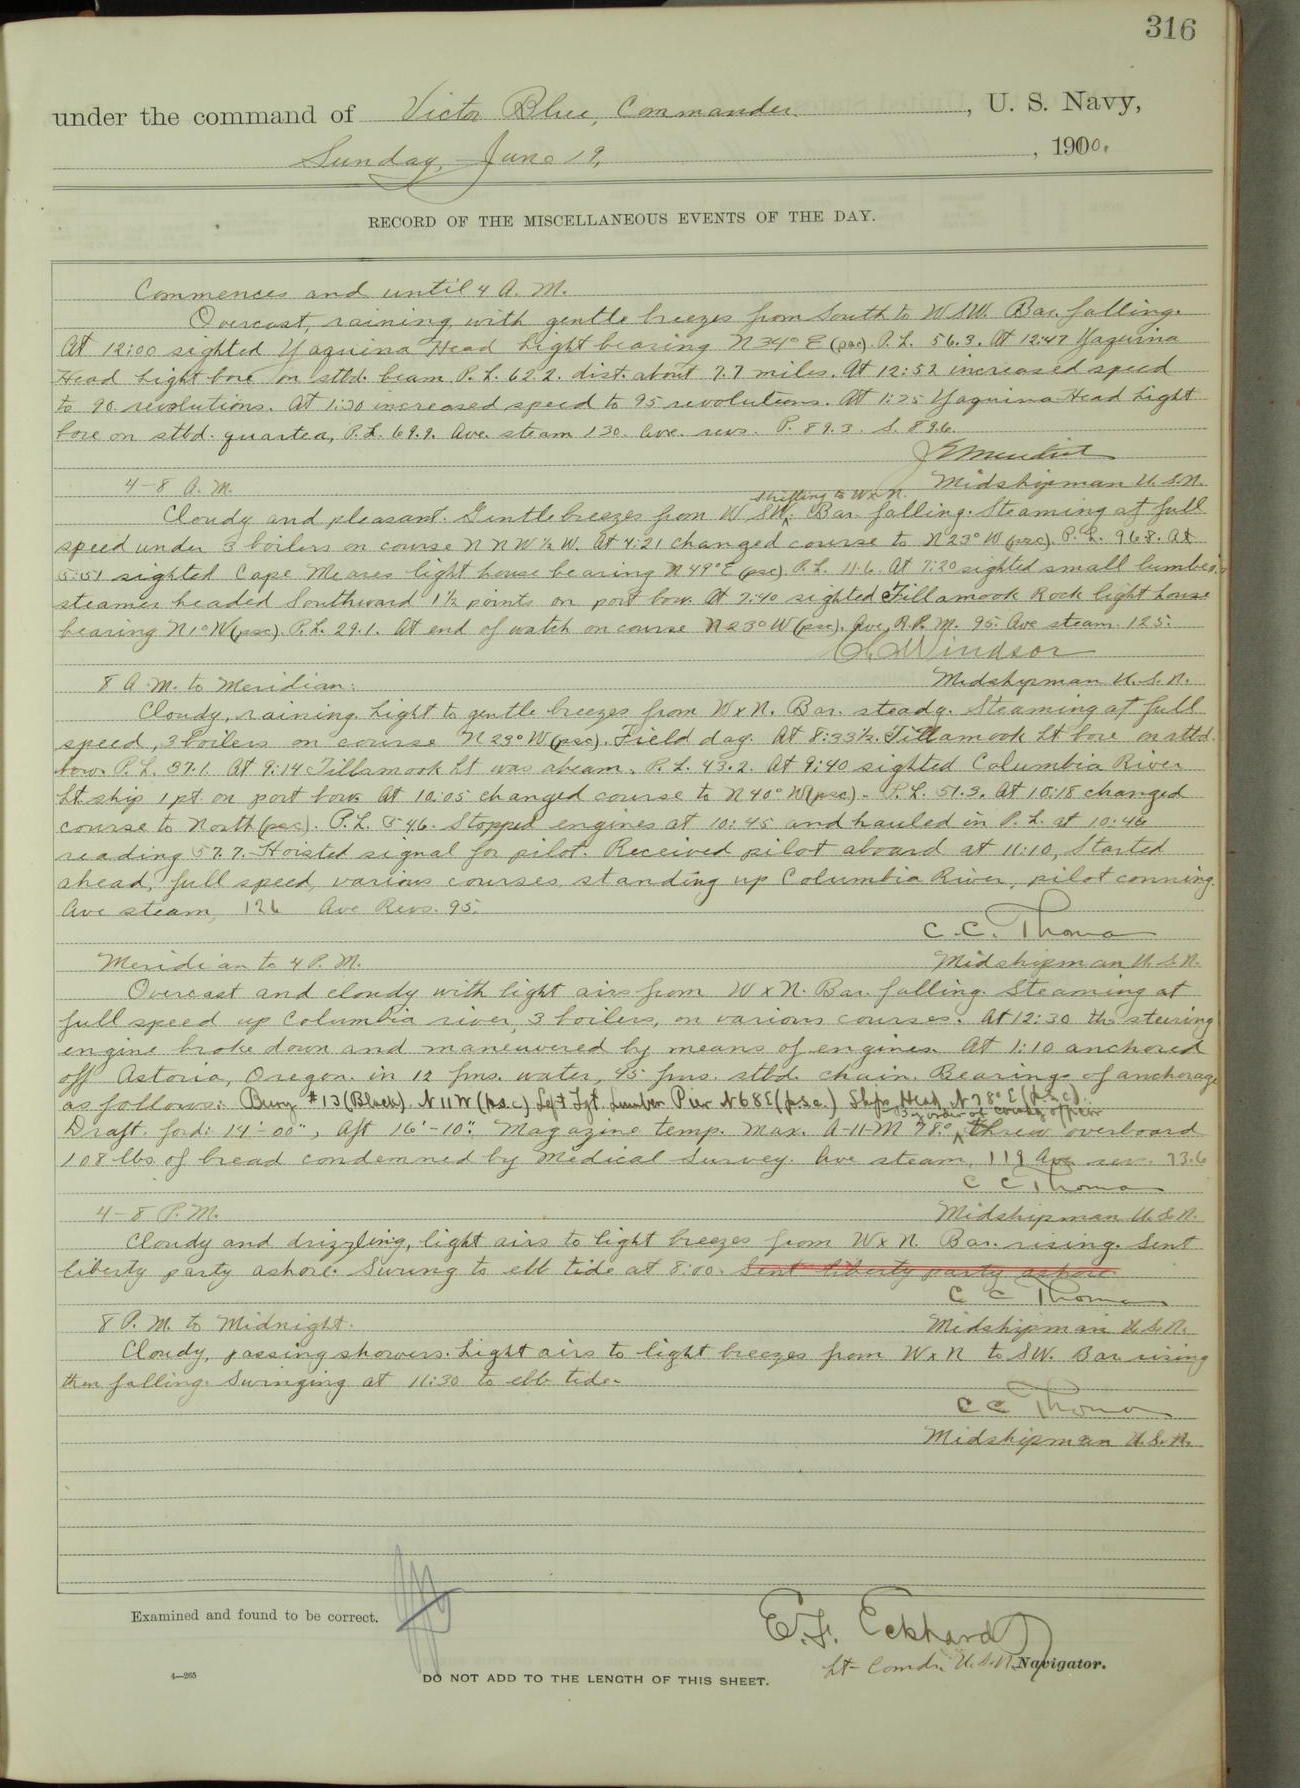 316
under the command of Victor Blue, Commander, U. S. Navy,
Sunday, June 19, 1900.
RECORD OF THE MISCELLANEOUS EVENTS OF THE DAY.
Commences and until 4 A. M.
Overcast, raining, with gentle breezes from South to WSW. Bar. falling.
At 12:00 sighted Yaquina Head Light bearing N 34° E (psc) P.L. 56.3. At 12:47 Yaquina
Head Light bore on stbd. beam P.L. 62.2. dist. about 7.7 miles. At 12:52 increased speed
to 90 revolutions. At 1:30 increased speed to 95 revolutions. At 1:35 Yaquina Head Light
bore on stbd. quarter, P.L. 69.9. Ave. steam 130. Ave. revs. P. 89.3. S. 89.6.
Midshipman U.S.N.
4-8 A. M.
shifting to WxN.
Cloudy and pleasant. Gentle breezes from W SW. Bar. falling. Steaming at full
speed under 3 boilers on course N N W ½ W. At 4:21 changed course to N 23° W (psc). P.L. 96.8. At
5:51 sighted Cape Meares light house bearing N 49° E (psc) P.L. 11.6. At 7:20 sighted small lumber
steamer headed Southward 1½ points on port bow. At 7:40 sighted Tillamook Rock light house
bearing N 1° W (psc) P.L. 29.1. At end of watch on course N 23° W (psc). Ave. R.P.M. 95. Ave steam. 125.
Windsor
Midshipman U.S.N.
8 A.M. to Meridian:
Cloudy, raining. Light to gentle breezes from WxN. Bar. steady. Steaming at full
speed, 3 boilers on course N 23° W (psc). Field day. At 8:33½ Tillamook Lt bore on stbd.
bow. P.L. 37.1. At 9:14 Tillamook Lt was abeam. P.L. 43.2. At 9:40 sighted Columbia River
Lt. ship 1 pt. on port bow. At 10:05 changed course to N 40° W (psc). P.L. 51.3. At 10:18 changed
course to North (psc). P.L. 54.6. Stopped engines at 10:45 and hauled in P.L. at 10:46
reading 57.7. Hoisted signal for pilot. Received pilot aboard at 11:10, Started
ahead, full speed, various courses standing up Columbia River, pilot conning.
Ave steam, 126 Ave Revs. 95.
C. C. Thomas
Midshipman U.S.N.
Meridian to 4 P.M.
Overcast and cloudy with light airs from WxN. Bar. falling. Steaming at
full speed up Columbia river, 3 boilers, on various courses. At 12:30 the steering
engine broke down and maneuvered by means of engines. At 1:10 anchored
off Astoria, Oregon. in 12 fms. water, 45 fms. stbd. chain. Bearings of anchorage
as follows: Buoy #13 (Black) N 11 W (p.s.c.) Left Tgt. Lumber Pier N 68 E (p.s.c.) Ships Head N 78° E (p.s.c.).
By order of comdg officer
Draft. for'd: 14'-00", Aft 16'-10". Magazine temp. max. A-11-M 78°. threw overboard
108 lbs. of bread condemned by Medical Survey. Ave steam, 119 Ave. rev. 73.6
C C Thomas
Midshipman U.S.N.
4-8 P.M.
Cloudy and drizzling, light airs to light breezes from WxN. Bar. rising. Sent
liberty party ashore. Swung to ebb tide at 8:00. Sent liberty party ashore.
C C Thomas
Midshipman U.S.N.
8 P.M. to Midnight.
Cloudy, passing showers. Light airs to light breezes from WxN to SW. Bar rising
then falling. Swinging at 11:30 to ebb tide.
C C Thomas
Midshipman U.S.N.
Examined and found to be correct.
E. F. Eckhardt
Lt-Comdr. U.S.N. Navigator.
4—265
DO NOT ADD TO THE LENGTH OF THIS SHEET.